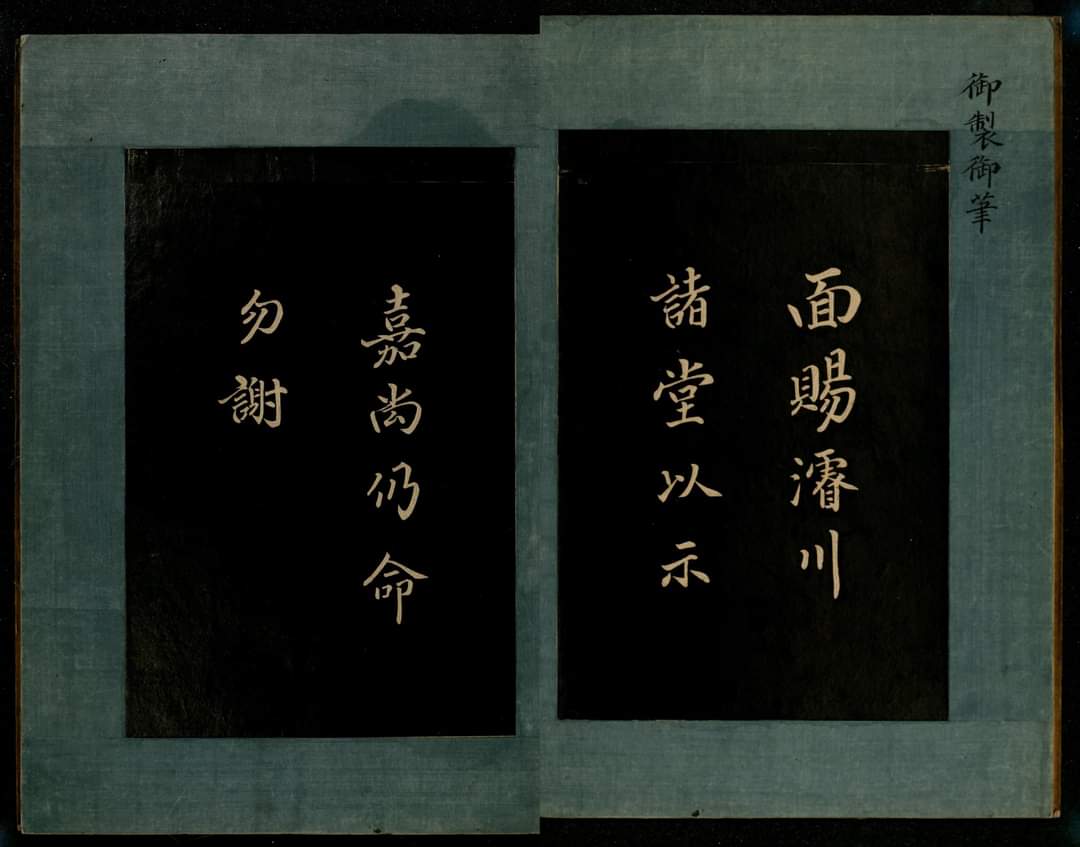 御製御筆
面賜濬川
諸堂以示
嘉尚仍命
勿謝